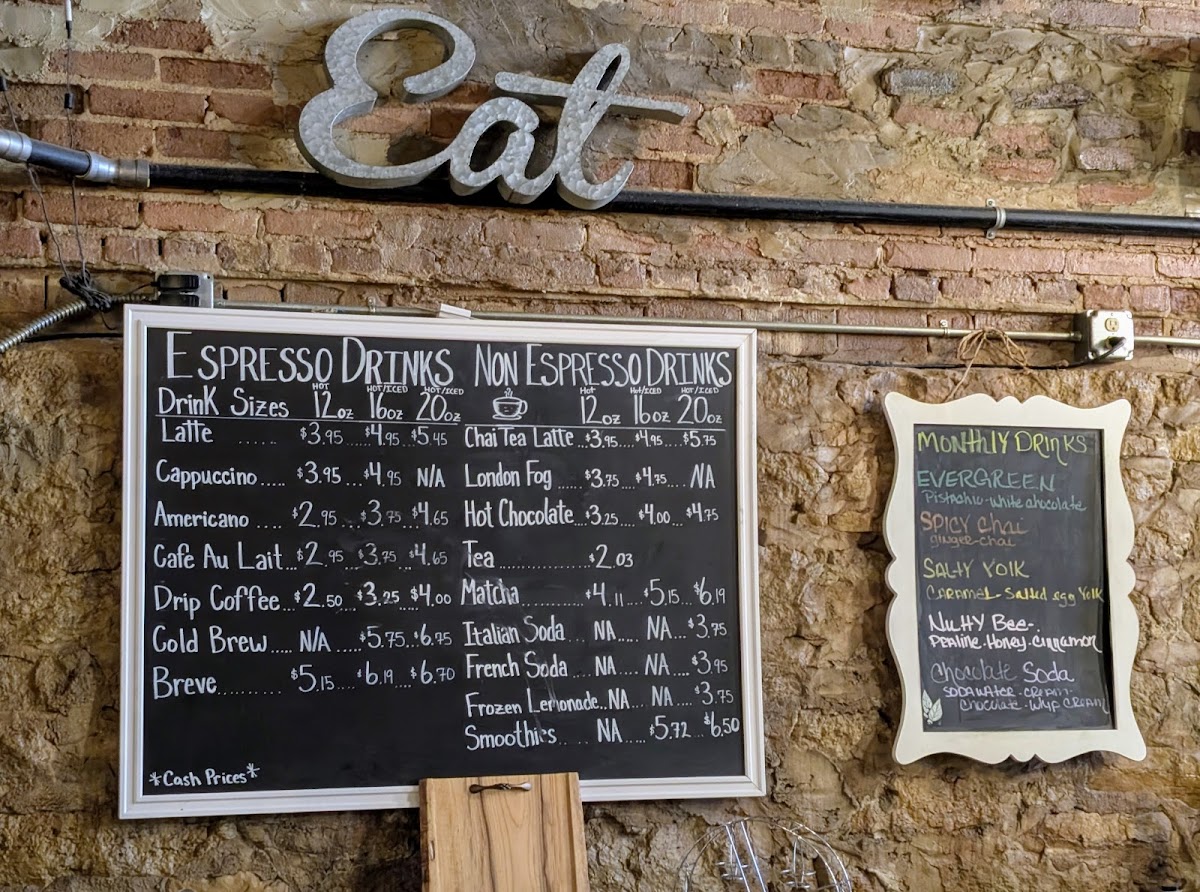 Eat
ESPRESSO DRINKS
HOT HOT/ICED HOT/ICED
Drink Sizes 12oz 16oz 20oz
Latte ...... $3.95...$4.95...$5.45
Cappuccino..... $3.95...$4.95 N/A
Americano .... $2.95...$3.75...$4.65
Cafe Au Lait...$2.95...$3.75...$4.65
Drip Coffee...$2.50...$3.25...$4.00
Cold Brew..... N/A ...$5.75...$6.75
Breve......... $5.15....$6.19...$6.70
*Cash Prices*
NON ESPRESSO DRINKS
HOT HOT/ICED HOT/ICED
12oz 16oz 20oz
Chai Tea Latte...$3.95...$4.95...$5.75
London Fog ....$3.75...$4.75... NA
Hot Chocolate...$3.25...$4.00...$4.75
Tea ...............$2.03
Matcha ...........$4.11...$5.15...$6.19
Italian Soda... NA.... NA...$3.75
French Soda ... NA ... NA ....$3.95
Frozen Lemonade..NA... NA ...$3.75
Smoothies...... NA ....$5.72...$6.50
MONTHLY DRINKS
EVERGREEN
Pistachio-white chocolate
SPICY Chai
ginger-chai
SALTY YOLK
CARAMEL-Salted egg Yolk
NuttY Bee-.
Perline.Honey.cinnamon
Chocolate Soda
SODAWATER-CREAM-
Chocolate-Whip CREAM